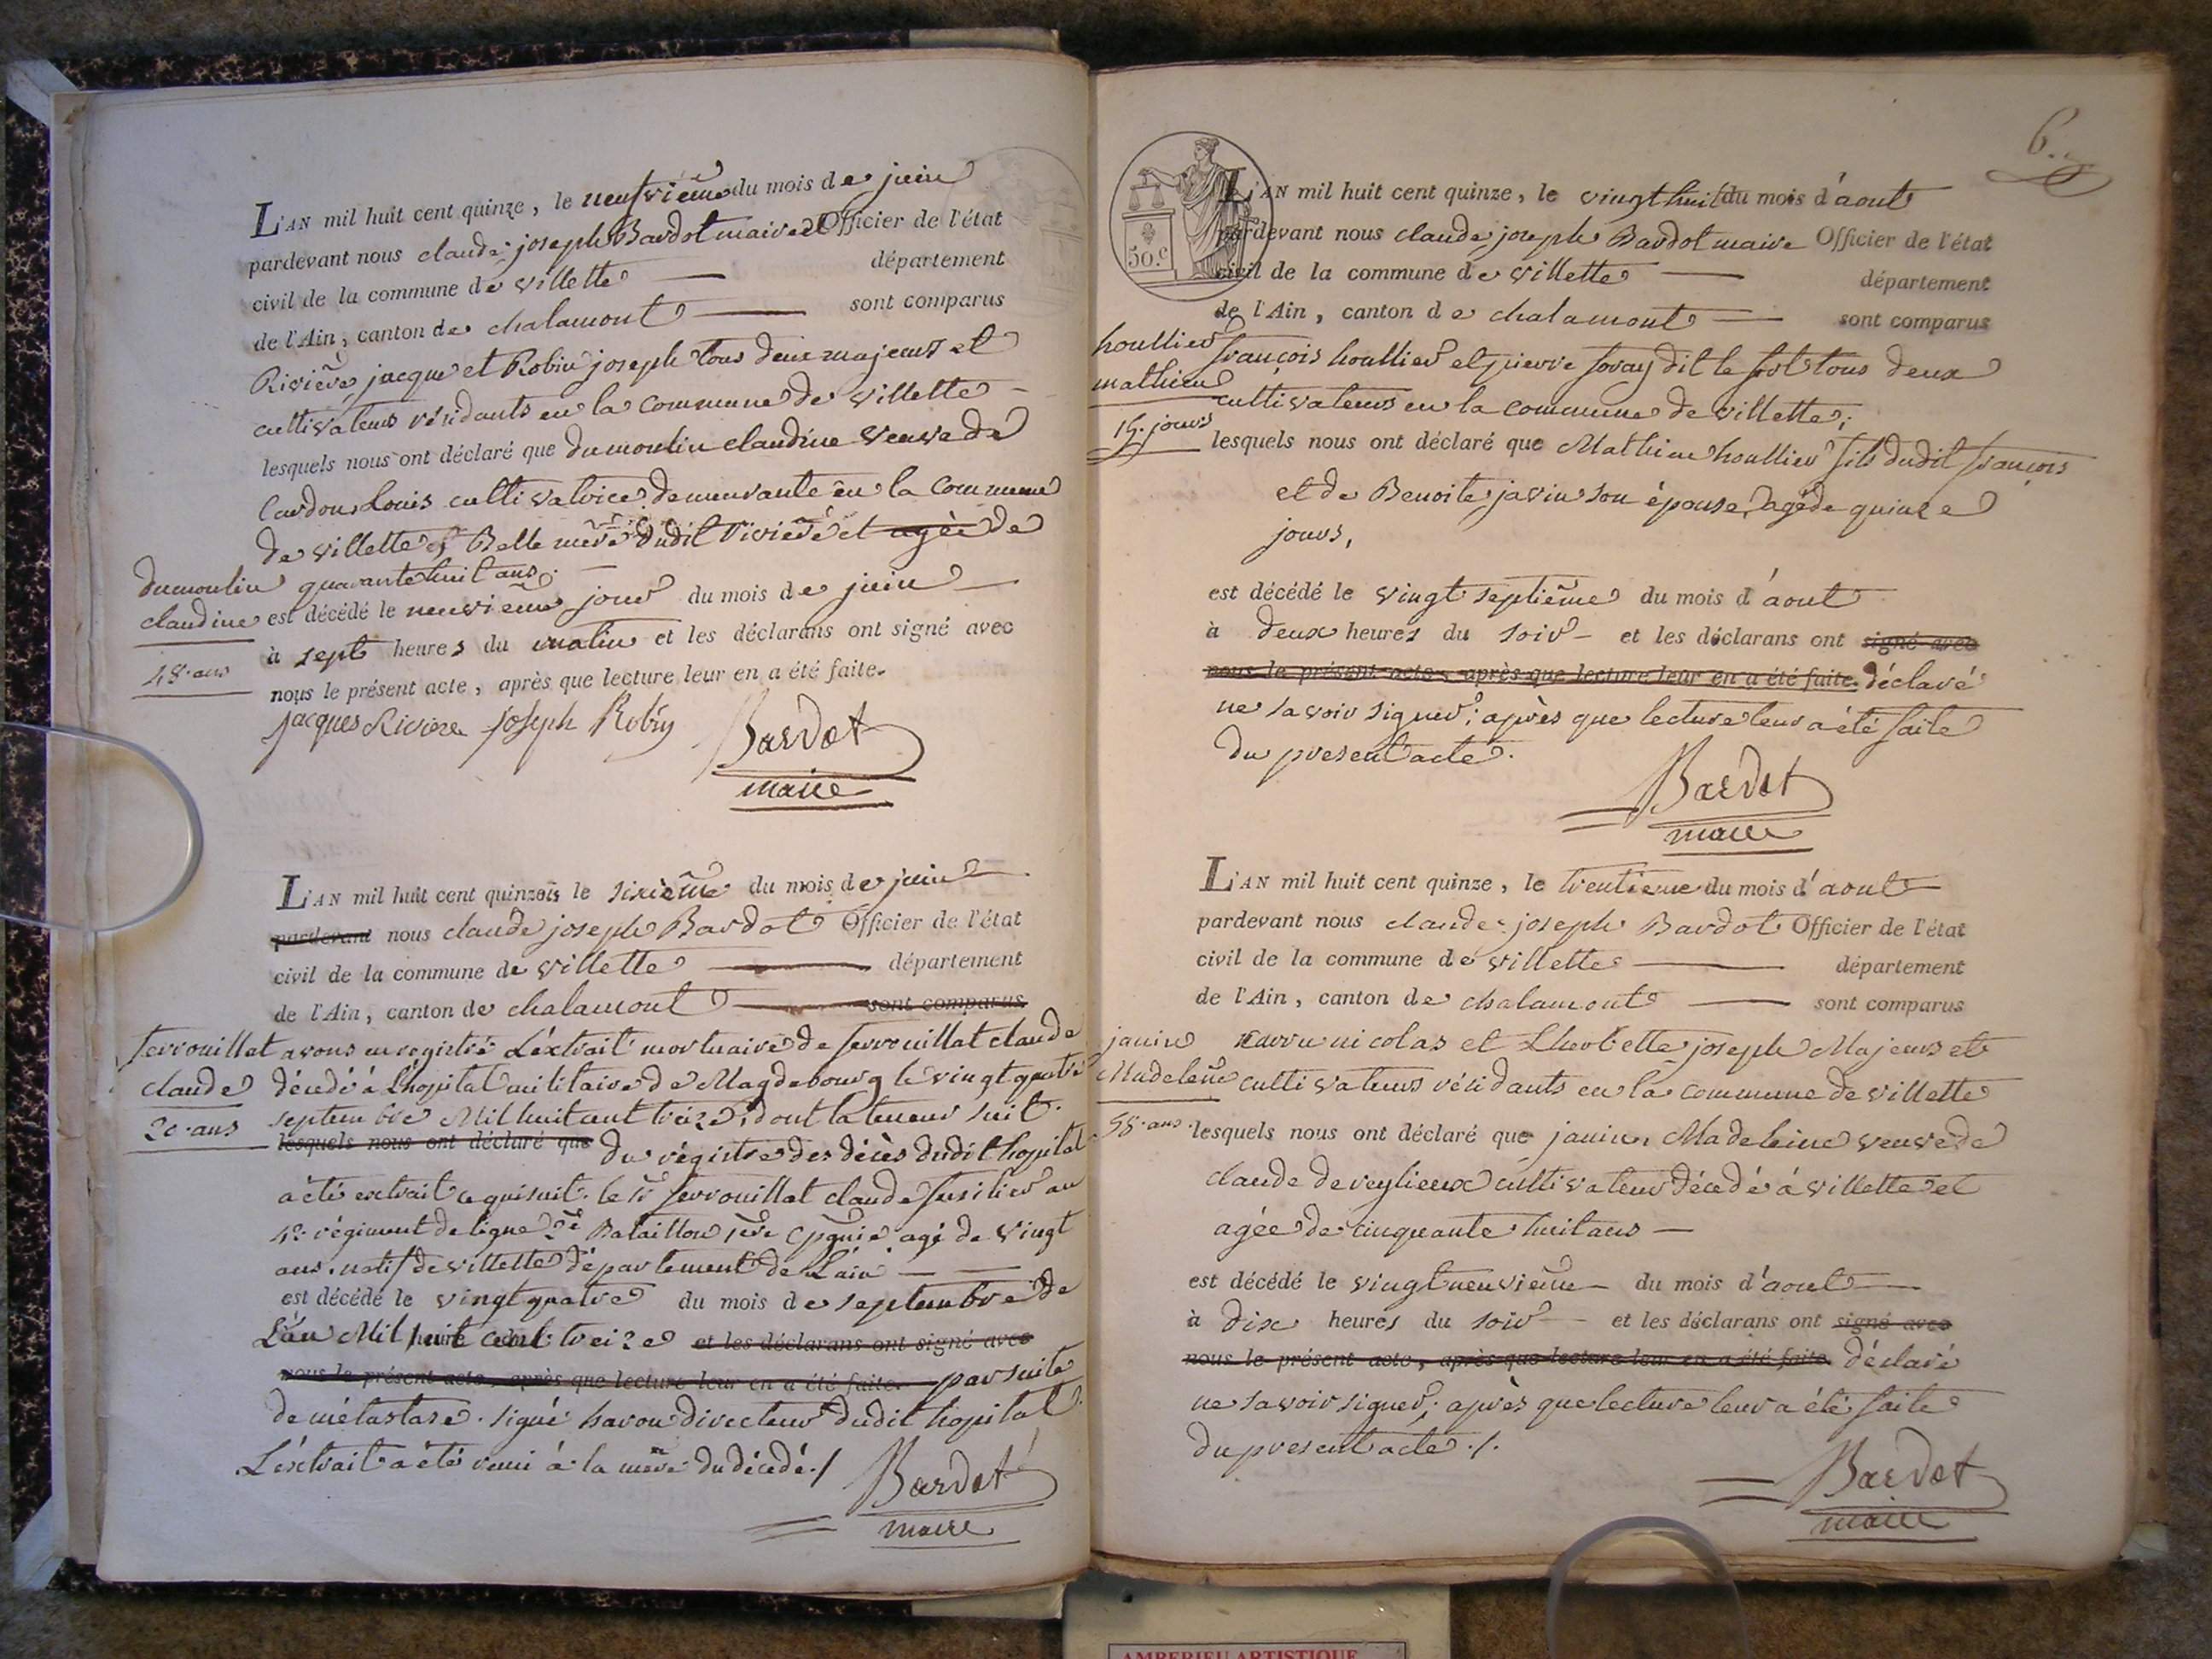 L'AN mil huit cent quinze, le neufvième du mois de juin
pardevant nous claude joseph Bardot maire et Officier de l'état
civil de la commune de villette département
de l'Ain, canton de chalamont sont comparus
Rivière jacque et Robin joseph tous deux majeurs et
cultivateurs résidants en la commune de villette
lesquels nous ont déclaré que dumoulin claudine veuve de
Cardon Louis cultivatrice demeurante en la commune
de villette Belle mère dudit Riviere et agée de
quarante huit ans.
dumoulin
claudine
48. ans
est décédé le neuvieme jour du mois de juin
à sept heures du matin et les déclarans ont signé avec
nous le présent acte, après que lecture leur en a été faite.
jacques Riviere joseph Robin Bardot
maire
L'AN mil huit cent quinze le sixième du mois de juin
pardevant nous claude joseph Bardot Officier de l'état
civil de la commune de villette département
de l'Ain, canton de chalamont sont comparus
ferrouillat
claude
20. ans
avons enregistré L'éxtrait mortuaire de ferrouillat claude
décédé à L'hopital militaire de Magdebourg le vingt quatre
septembre Mil huit cent treize, dont la teneur suit.
lesquels nous ont déclaré que du régistre des décès dudit hopital
a été extrait ce qui suit. le Sr ferrouillat claude fusilier au
régiment de ligne 2e Bataillon 1ere Cpgnie agé de vingt
ans. natif de villette département de L'ain
est décédé le vingt quatre du mois de septembre de
L'an Mil huit cent treize et les déclarans ont signé avec
nous le présent acte, après que lecture leur en a été faite. par suite
de métastase. signé havon directeur dudit hopital
L'éxtrait a été remi à la mère du décédé./
Bardot
maire
6.
50.c
L'AN mil huit cent quinze, le vingt huit du mois d'aout
pardevant nous claude joseph Bardot maire Officier de l'état
civil de la commune de villette département
de l'Ain, canton de chalamont sont comparus
houllier
mathieu
15. jours
françois houllier et pierre foray dit le fort tous deux
cultivateurs en la commune de villette;
lesquels nous ont déclaré que Mathieu houllier fils dudit françois
et de Benoite javin son épouse, agé de quinze
jours,
est décédé le vingt septième du mois d'aout
à deux heures du soir et les déclarans ont signé avec
nous le présent acte, après que lecture leur en a été faite. déclaré
ne savoir signer; après que lecture leur a été faite
du present acte.
Bardot
maire
L'AN mil huit cent quinze, le trentieme du mois d'aout
pardevant nous claude joseph Bardot Officier de l'état
civil de la commune de villette département
de l'Ain, canton de chalamont sont comparus
janin
Madeleine
58. ans
nicolas et Lherbette joseph Majeurs et
cultivateurs résidants en la commune de villette
lesquels nous ont déclaré que janin Madeleine veuve de
claude deveylieux cultivateur décédé à villette et
agée de cinquante huit ans
est décédé le vingt neuvieme du mois d'aout
à dix heures du soir et les déclarans ont signé avec
nous le présent acte, après que lecture leur en a été faite. déclaré
ne savoir signer; après que lecture leur a été faite
du present acte./.
Bardot
maire
AMBERIEU ARTISTIQUE